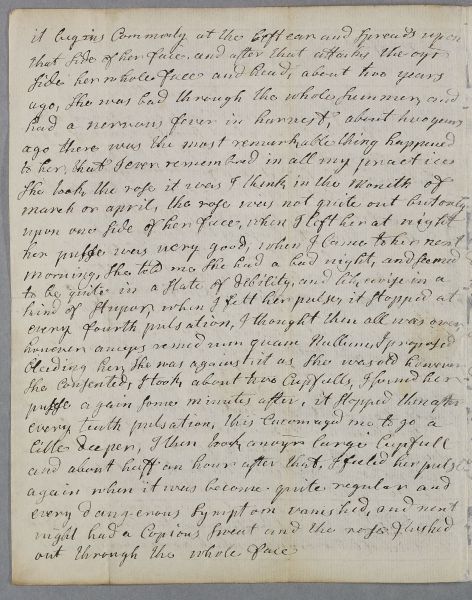 it begins Commonly at the left ear and Spreads upon
that Side of her face, and after that attacks the oyr
Side her whole face and head, about two years
ago, She was bad through the whole Summer, and
had a nervous fever in harvest, about two years
ago there was the most remarkable thing happened
to her, that I ever remembred in all my practices
She took the rose it was I think in the Month of
march or april, the rose was not quite out but only
upon one Side of her face, when I left her at night
her pulse was very good, when I came to her next
morning, She told me She had a bad night, and Seemed
to be quite in a State of debility, and likewise in a
kind of Stupor, when I felt her pulse, it Stopped at
every fourth pulsation, I thought then all was over,
however anceps remedium quam Nullum, I proposed
bleiding her, She was against it as She was old however
She Consented, I took about two Cupfulls, I found her
pulse again Some minutes after, it Stopped then at
every tenth pulsation, this Encouraged me to go a
little deeper, I then took anoyr large Cupfull
and about half an hour after that, I feeled her pulse
again when it was become quite regular and
every dangerous Symptom vanished, and next
night had a Copious Sweat and the rose flushed
out through the whole face